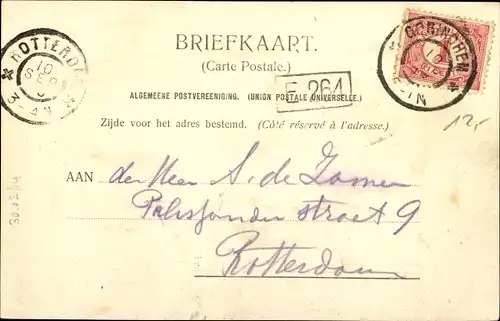 ROTTERDAM
10
SEP
BRIEFKAART.
(Carte Postale.)
GORINCHEM
10
ALGEMEENE POSTVEREENIGING. (UNION POSTALE UNIVERSELLE.)
F 264
Zijde voor het adres bestemd. (Côté réservé à l'adresse.)
12,-
AAN der Heer S. de Zomer
straat 9
Rotterdam
30.02/14